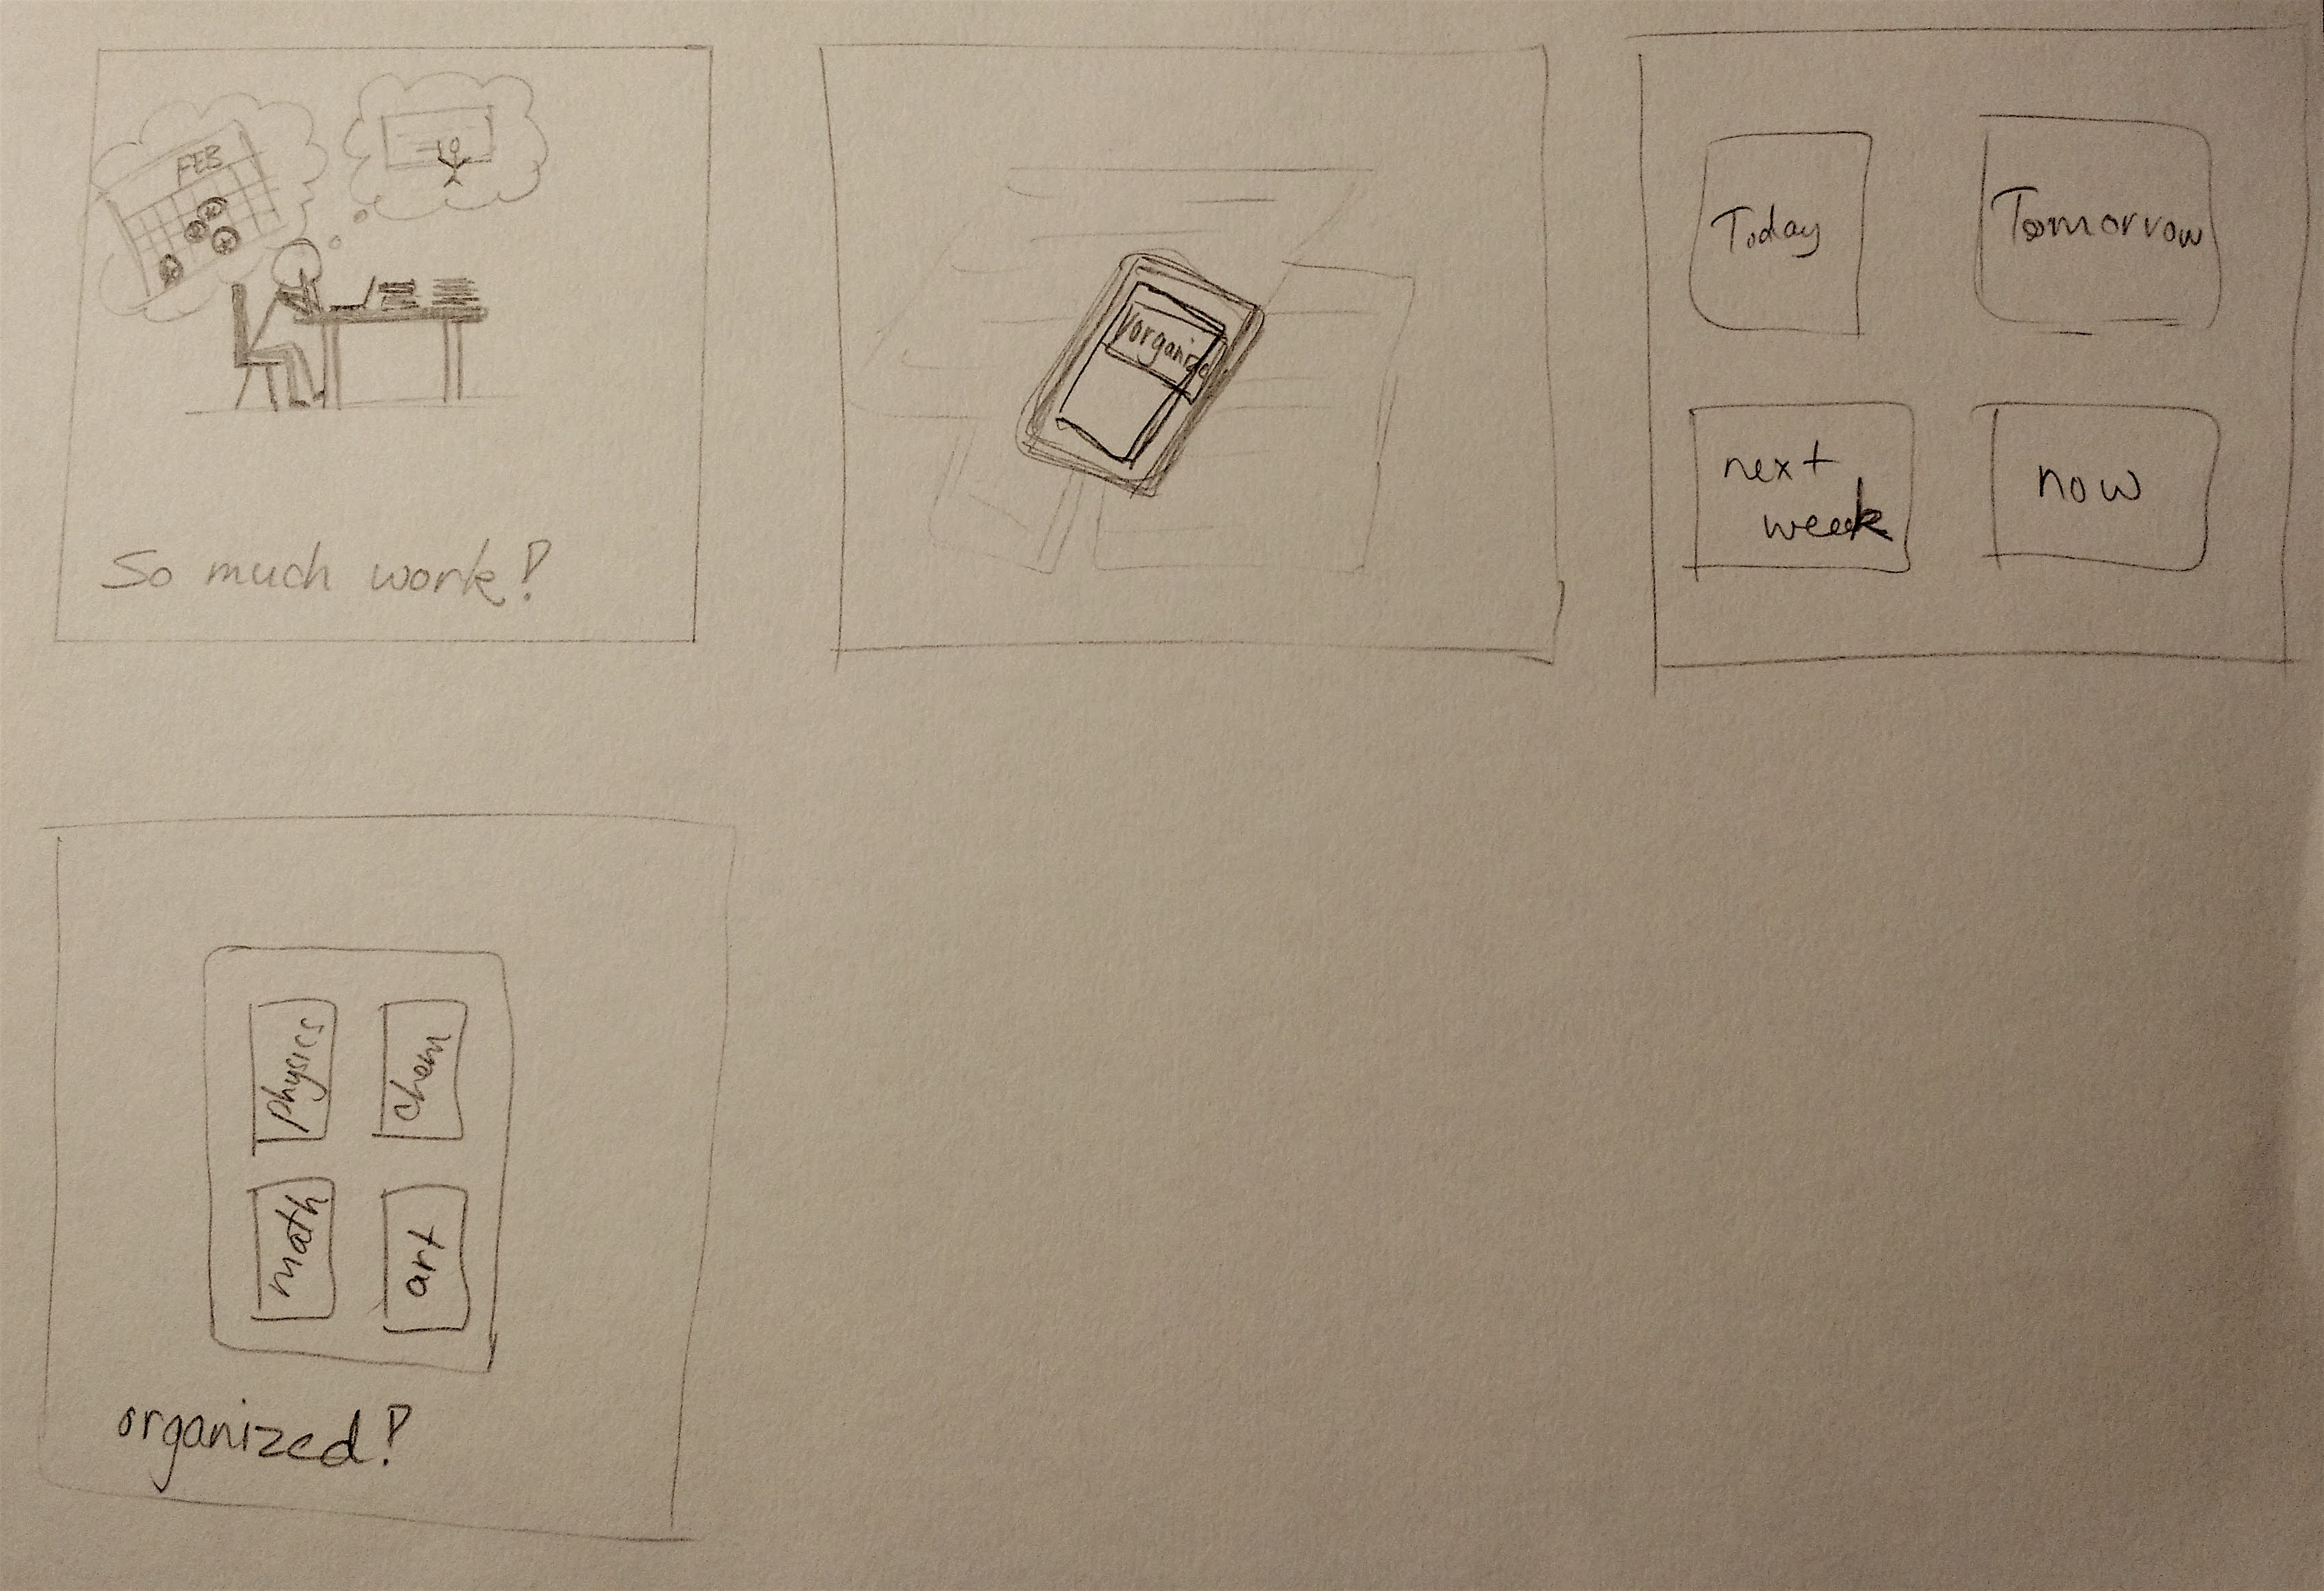 FEB
So much work!
Today
Tomorrow
next
week
now
Physics
Chem
math
art
organized!